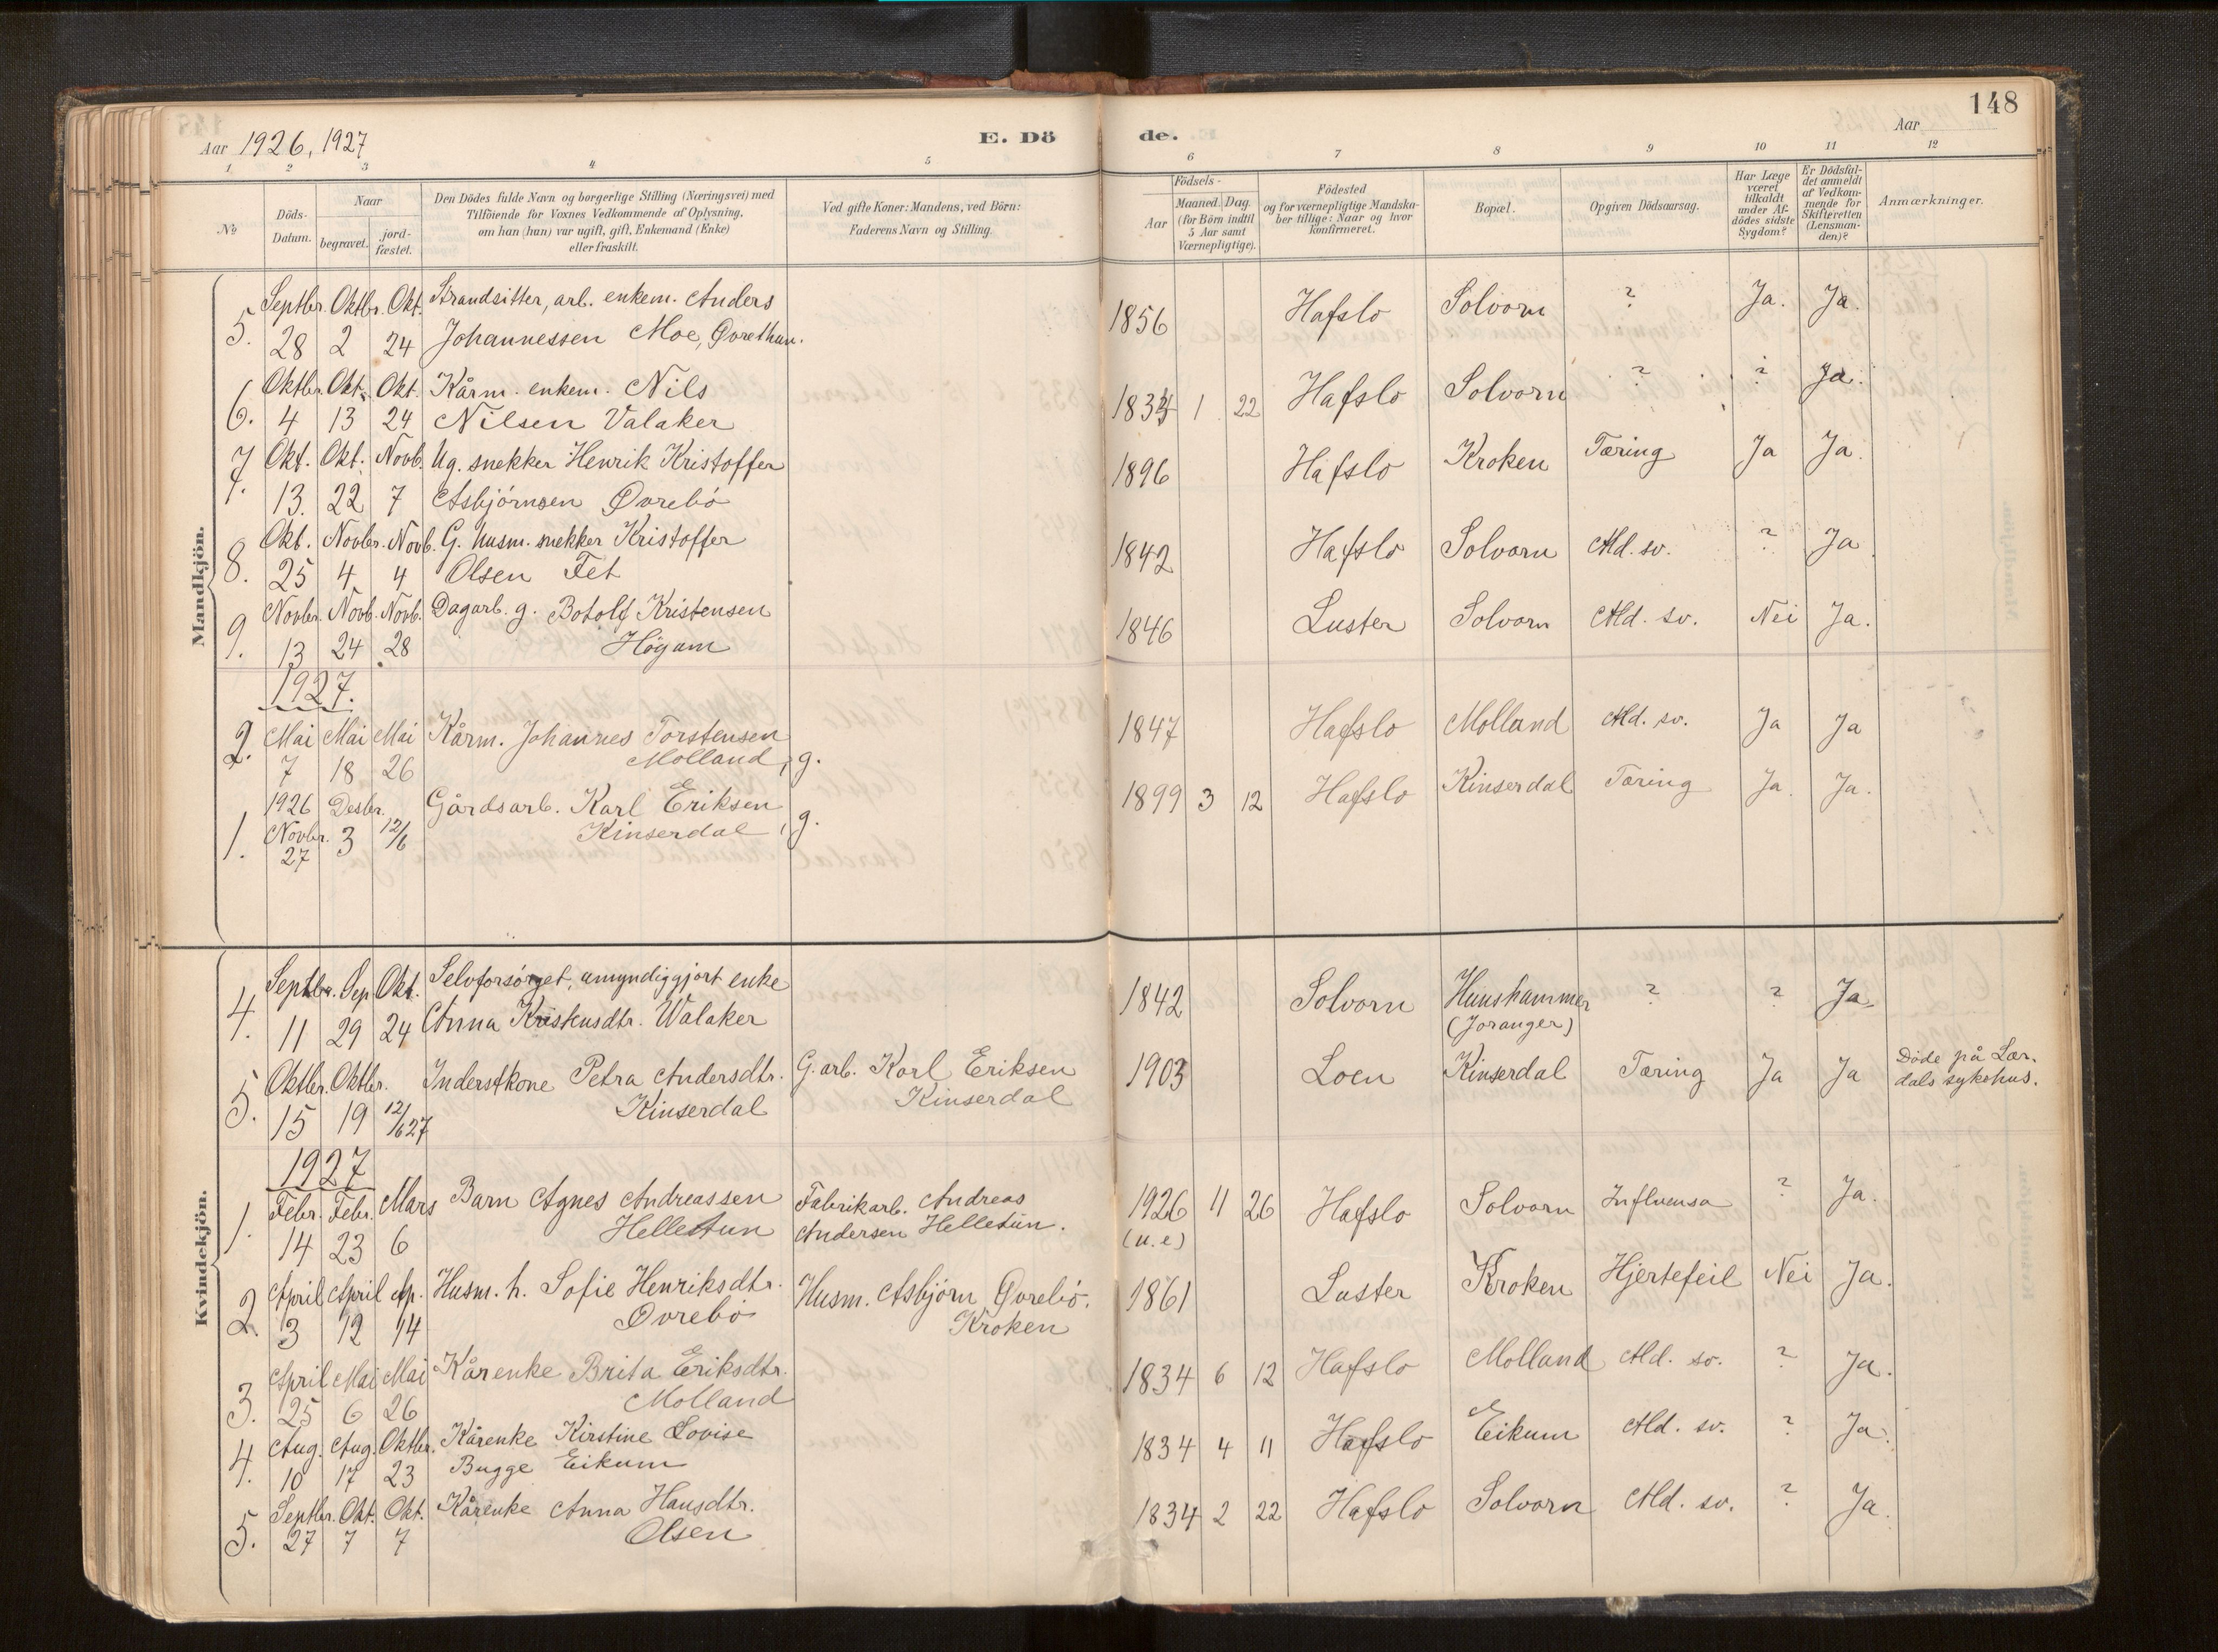 148
Aar 1926, 1927
E. Dö de.
Aar
1 2 3 4 5 6 7 8 9 10 11 12
№
Döds-
Datum.
Naar
begravet.
jord-
fæstet.
Den Dödes fulde Navn og borgerlige Stilling (Næringsvei) med
Tilföiende for Voxnes Vedkommende af Oplysning,
om han (hun) var ugift, gift, Enkemand (Enke)
eller fraskilt.
Ved gifte Koner: Mandens, ved Börn:
Faderens Navn og Stilling.
Födsels-
Aar
Maaned. Dag.
(for Börn indtil
5 Aar samt
Værnepligtige).
Födested
og for værnepligtige Mandska-
ber tillige: Naar og hvor
konfirmeret.
Bopæl.
Opgiven Dödsaarsag.
Har Læge
været
tilkaldt
under Af-
dödes sidste
Sygdom?
Er Dödsfal-
det anmeldt
af Vedkom-
mende for
Skifteretten
(Lensman-
den)?
Anmærkninger.
Mandkjön.
Septbr. Oktbr. Okt. Strandsitter, arb. enkem. Anders
5. 28 2 24 Johannessen Moe, Øvrethun. 1856 Hafslo Solvorn ? Ja. Ja.
Oktbr. Okt. Okt. Kårm. enkem. Nils
6. 4 13 24 Nilsen Valaker 1834 1 22 Hafslo Solvorn ? ? Ja.
Okt. Okt. Novb. Ug. snekker Henrik Kristoffer
7. 13. 22 7 Asbjörnsen Øvrebö 1896 Hafslo Kroken Tæring Ja Ja.
Okt. Novbr. Novb. G. husm. snekker Kristoffer
8. 25 4 4 Olsen Fet 1842 Hafslo Solvorn Ald. sv. ? Ja.
Novbr. Novb. Novb. Dagarb. g. Botolf Kristensen
9. 13 24 28 Högum 1846 Luster Solvorn Ald. sv. Nei Ja.
1927.
Mai Mai Mai Kårm. Johannes Torstensen
2. 7 18 26 Molland, g. 1847 Hafslo Molland Ald. sv. Ja Ja
1926 Desbr. Gårdsarb. Karl Eriksen
1. Novbr. 27 3 12/6 Kinserdal, g. 1899 3 12 Hafslo Kinserdal Tæring Ja. Ja.
Kvindekjön.
Septbr. Sep Okt. Selvforsörget, umyndiggjort enke
4. 11 29 24 Anna Kristensdtr. Walaker 1842 Solvorn Hunshammer ? ? Ja.
(Joranger)
Oktbr. Oktbr. Inderstkone Petra Andersdtr. G. arb. Karl Eriksen
5. 15 19 12/6 27 Kinserdal Kinserdal 1903 Loen Kinserdal Tæring Ja Ja Döde på Lær-
dals sykehus.
1927
Febr. Febr. Mars Barn Agnes Andreassen Fabrikarb. Andreas
1. 14 23 6 Hellestun Andersen Helletun. 1926 11 26 Hafslo Solvorn Influensa ? Ja.
(u.e)
April April Ap. Husm. h. Sofie Henriksdtr. Husm. Asbjörn Øvrebö.
2. 3 12 14 Øvrebö Kroken 1861 Luster Kroken Hjertefeil Nei Ja.
April Mai Mai Kårenke Brita Eriksdtr.
3. 25 6 26 Molland 1834 6 12 Hafslo Molland Ald. sv. ? Ja.
Aug. Aug. Oktbr. Kårenke Kirstine Lovise
4. 10 17 23 Bugge Eikum 1834 4 11 Hafslo Eikum Ald. sv. ? Ja.
Septbr. Okt. Okt. Kårenke Anna Hansdtr.
5. 27 7 7 Olsen 1834 2 22 Hafslo Solvorn Ald. sv. ? Ja.